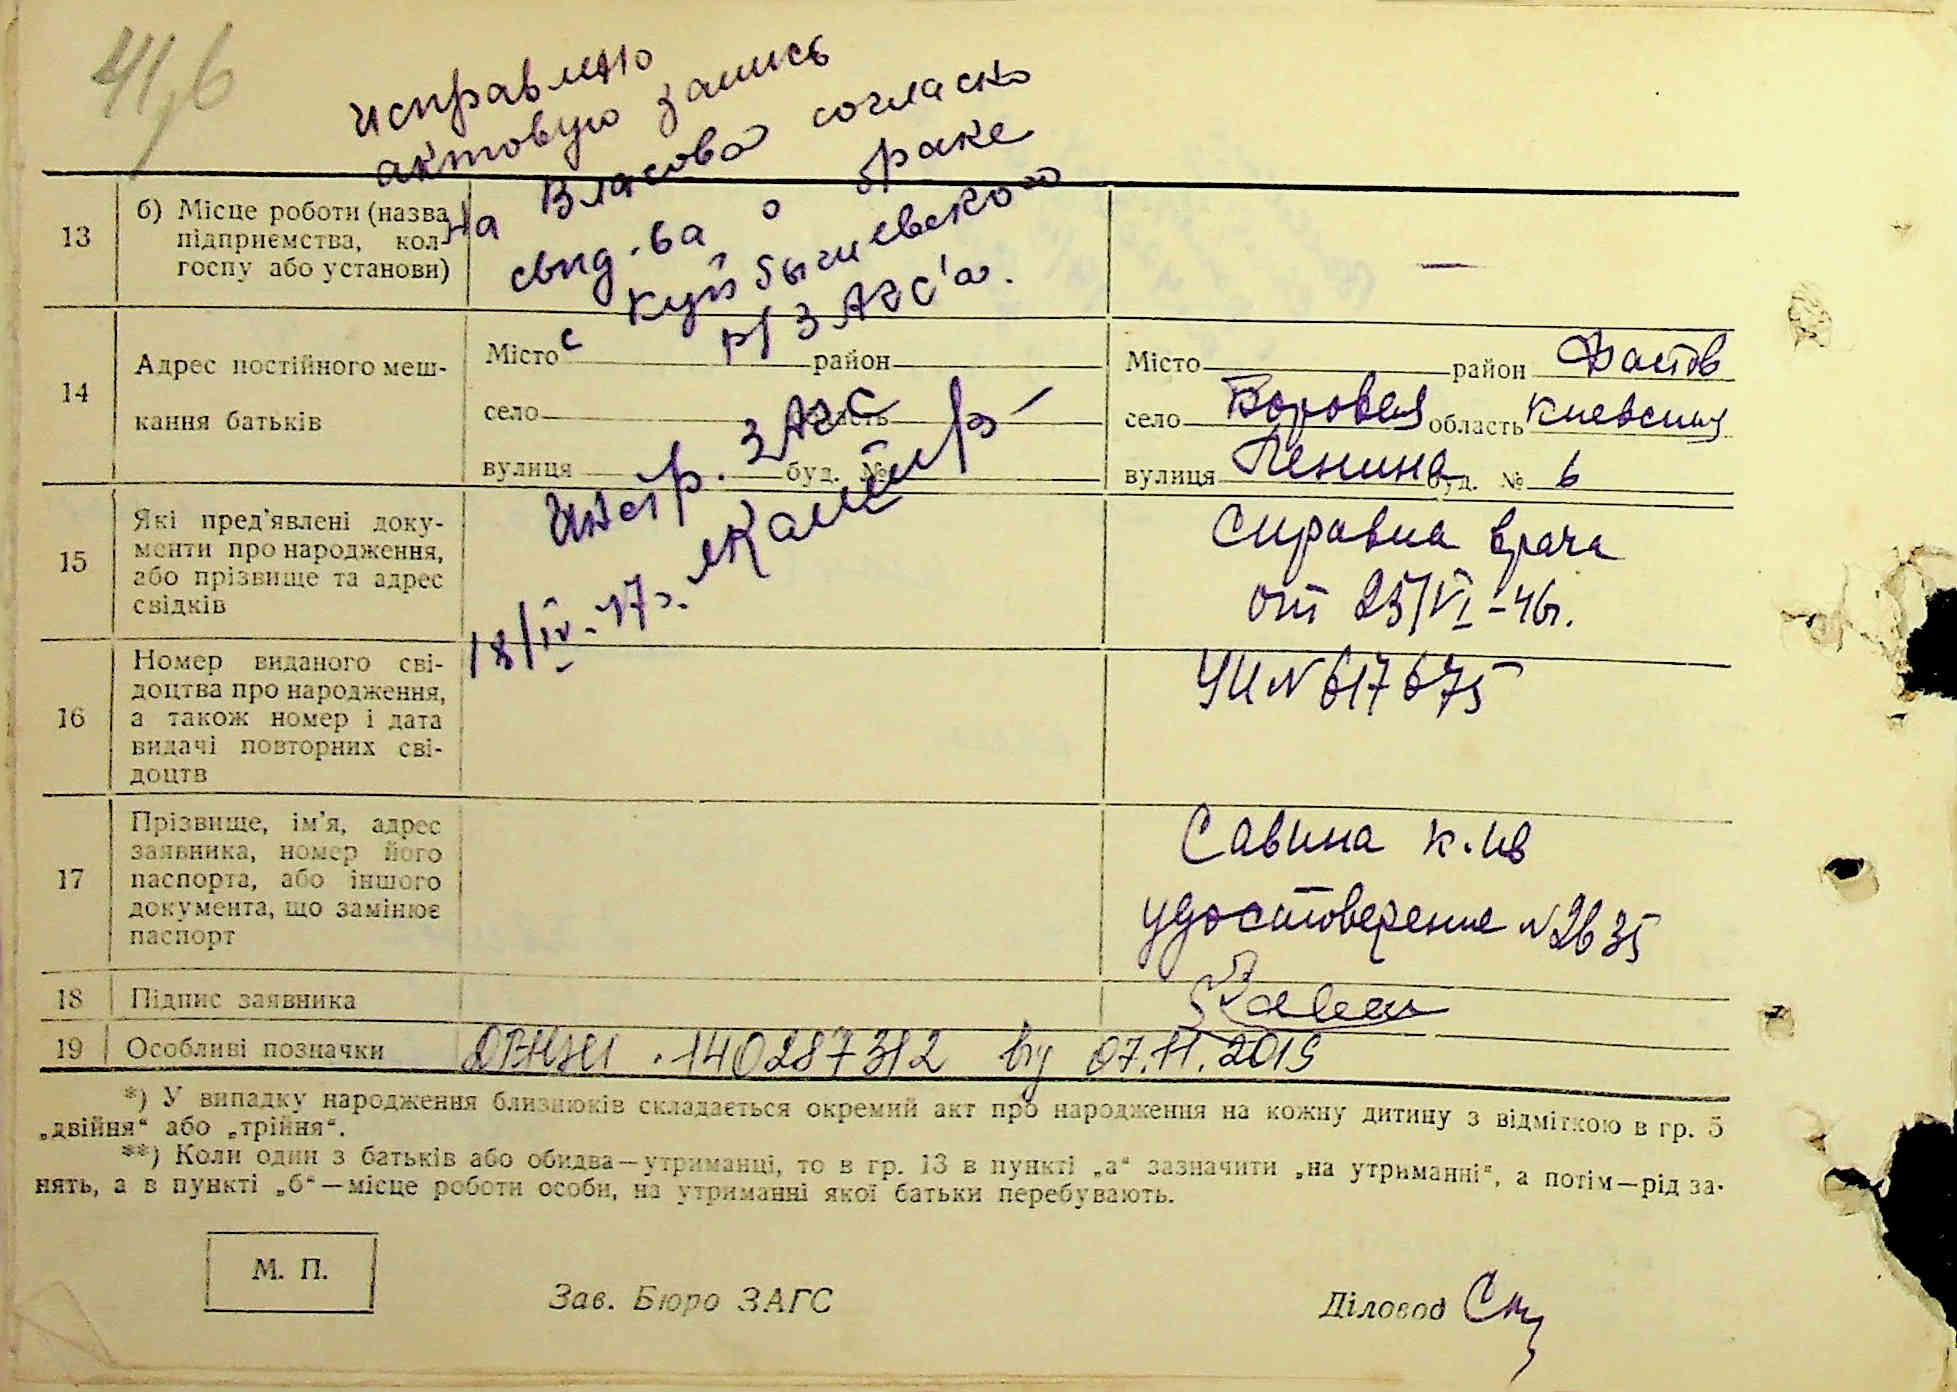 41,6
исправляю
актовую запись
на Власова согласно
свид-ва о браке
с Куйбышевского
р/ЗАГС'а.
Инспр. ЗАГС
18/IV-47г.
13 б) Місце роботи (назва
підприємства, кол-
госпу або установи) —
14 Адрес постійного меш-
кання батьків
Місто район
село область
вулиця буд. №
Місто район Фастов
село Боровая область Киевская
вулиця Ленина буд. № 6
15 Які пред'явлені доку-
менти про народження,
або прізвище та адрес
свідків
Справка врача
от 25/VI-46г.
16 Номер виданого сві-
доцтва про народження,
а також номер і дата
видачі повторних сві-
доцтв
УИ № 617675
17 Прізвище, ім'я, адрес
заявника, номер його
паспорта, або іншого
документа, що замінює
паспорт
Савина К. Ив
удостоверение № 2635
18 Підпис заявника
19 Особливі позначки 140287312 від 07.11.2019
*) У випадку народження близнюків складається окремий акт про народження на кожну дитину з відміткою в гр. 5
„двійня“ або „трійня“.
**) Коли один з батьків або обидва—утриманці, то в гр. 13 в пункті „а“ зазначити „на утриманні“, а потім—рід за-
нять, а в пункті „б“—місце роботи особи, на утриманні якої батьки перебувають.
М. П.
Зав. Бюро ЗАГС
Діловод